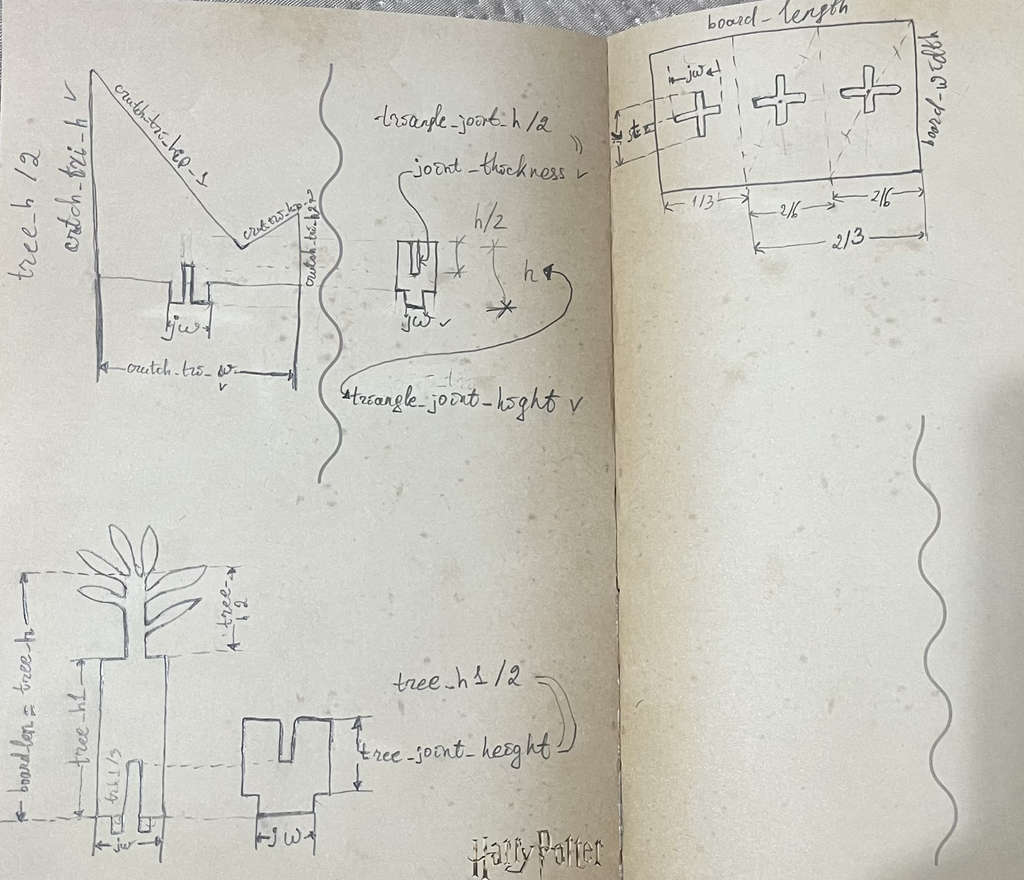 tree_h /2
crtch_tri_h v
crutch_tri_hip_1
crutch_tri_h2
jw
crutch_tri_w
v
triangle_joint_h/2
joint_thickness v
h/2
h
jw v
triangle_joint_hight v
boardlen = tree_h
tree_h1
tree_h2
jw
tree_h1/2
tree_joint_height
jw
Harry Potter
board_length
board_width
jw
1/3
2/6
2/6
2/3